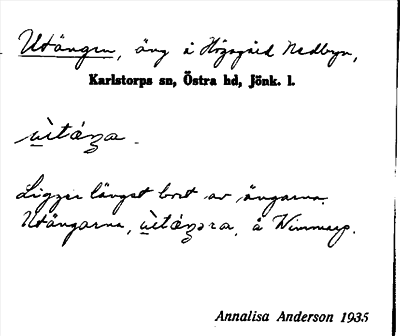 Utängen, äng å Högagärd Nedbyn,
Karlstorps sn, Östra hd, Jönk. l.
ùtáŋa.
Ligger längst bort av ängarna.
Utängarna, ùtáŋəra, å Wimmarp.
Annalisa Anderson 1935